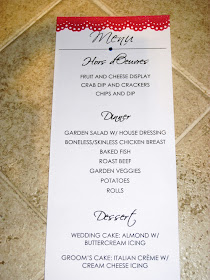 Menu
Hors d'Oeuvres
FRUIT AND CHEESE DISPLAY
CRAB DIP AND CRACKERS
CHIPS AND DIP
Dinner
GARDEN SALAD W/ HOUSE DRESSING
BONELESS/SKINLESS CHICKEN BREAST
BAKED FISH
ROAST BEEF
GARDEN VEGGIES
POTATOES
ROLLS
Dessert
WEDDING CAKE: ALMOND W/
BUTTERCREAM ICING
GROOM'S CAKE: ITALIAN CRÈME W/
CREAM CHEESE ICING